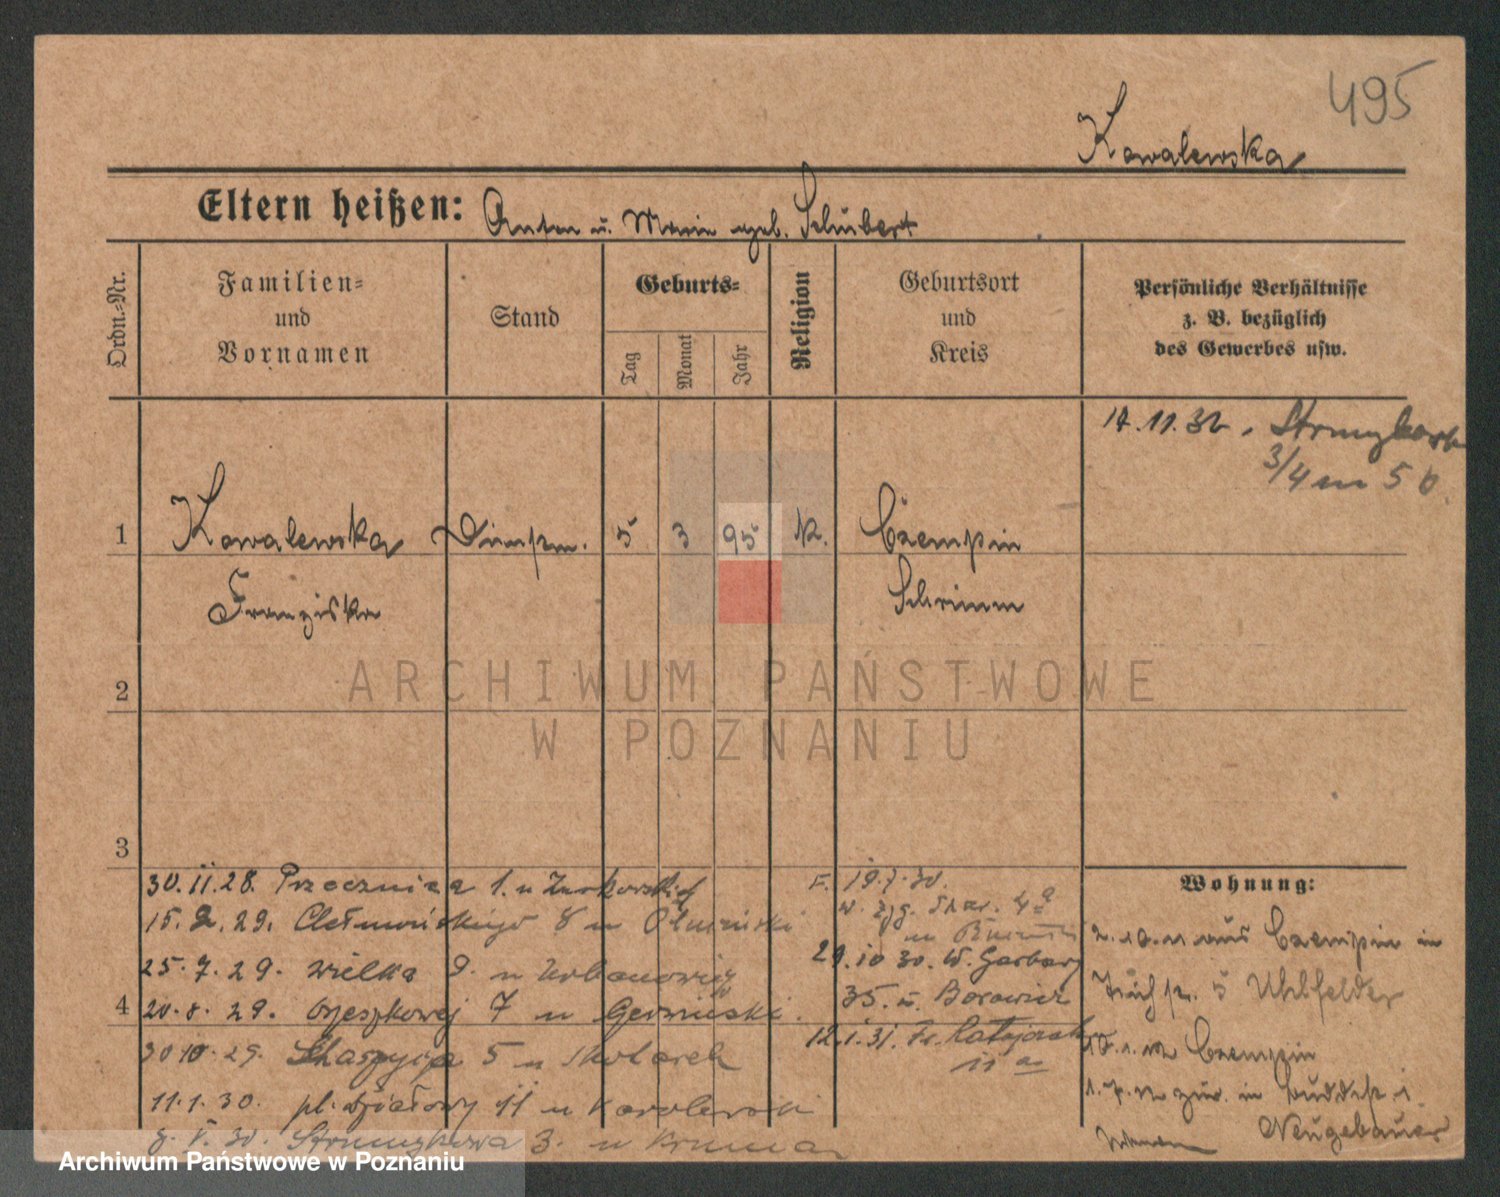 495
Kowalewska
Eltern heißen: Anton u. Marie geb. Schubert
Ordn.-Nr.
Familien-
und
Vornamen
Stand
Geburts-
Tag
Monat
Jahr
Religion
Geburtsort
und
Kreis
Persönliche Verhältnisse
z. B. bezüglich
des Gewerbes usw.
17.11.32.
3/4 m 5 b.
1 Kowalewska 5 3 95 K. Czempin
Franziska Schrimm
2
3
4
ARCHIWUM PAŃSTWOWE
W POZNANIU
30.11.28. Przecznica 1. u Zurkowskich
15.2.29. 8 u
25.7.29. Wielka 9. u Urbanowicz
20.8.29. Orzeszkowej 7 u
30.10.29. 5 u Skolarek
11.1.30. pl. Działowy 11 u Karolewski
8.V.30. Strumykowa 3. u
F. 19.7.30.
29.10 30. W. Garbary
35. u. Borowicz
12.1.31. Fr. Ratajczaka
11 a
Wohnung:
2.10.11 aus Czempin in
5 Uhlfelder
Czempin
in
Neugebauer
Archiwum Państwowe w Poznaniu